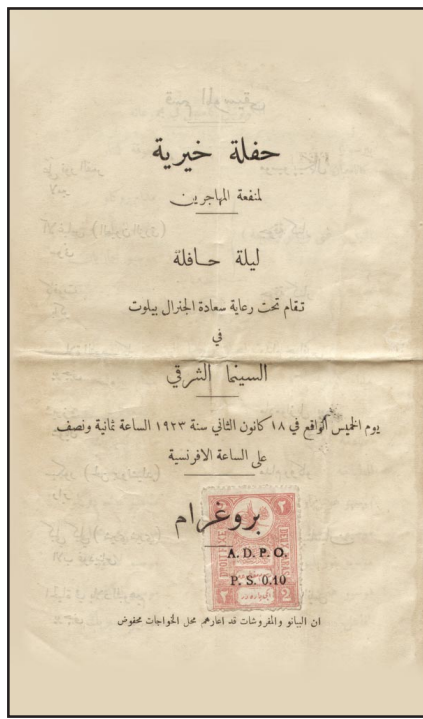 حفلة خيرية
لمنفعة المهاجرين
ليلة حافلة
تقام تحت رعاية سعادة الجنرال بيلوت
في
السينما الشرقي
يوم الخميس الواقع في ١٨ كانون الثاني سنة ١٩٢٣ الساعة ثمانية ونصف
على الساعة الافرنسية
بروغرام
A. D. P. O.
P. S. 0.10
2
ان البيانو والمفروشات قد اعارهم محل الخواجات محفوض